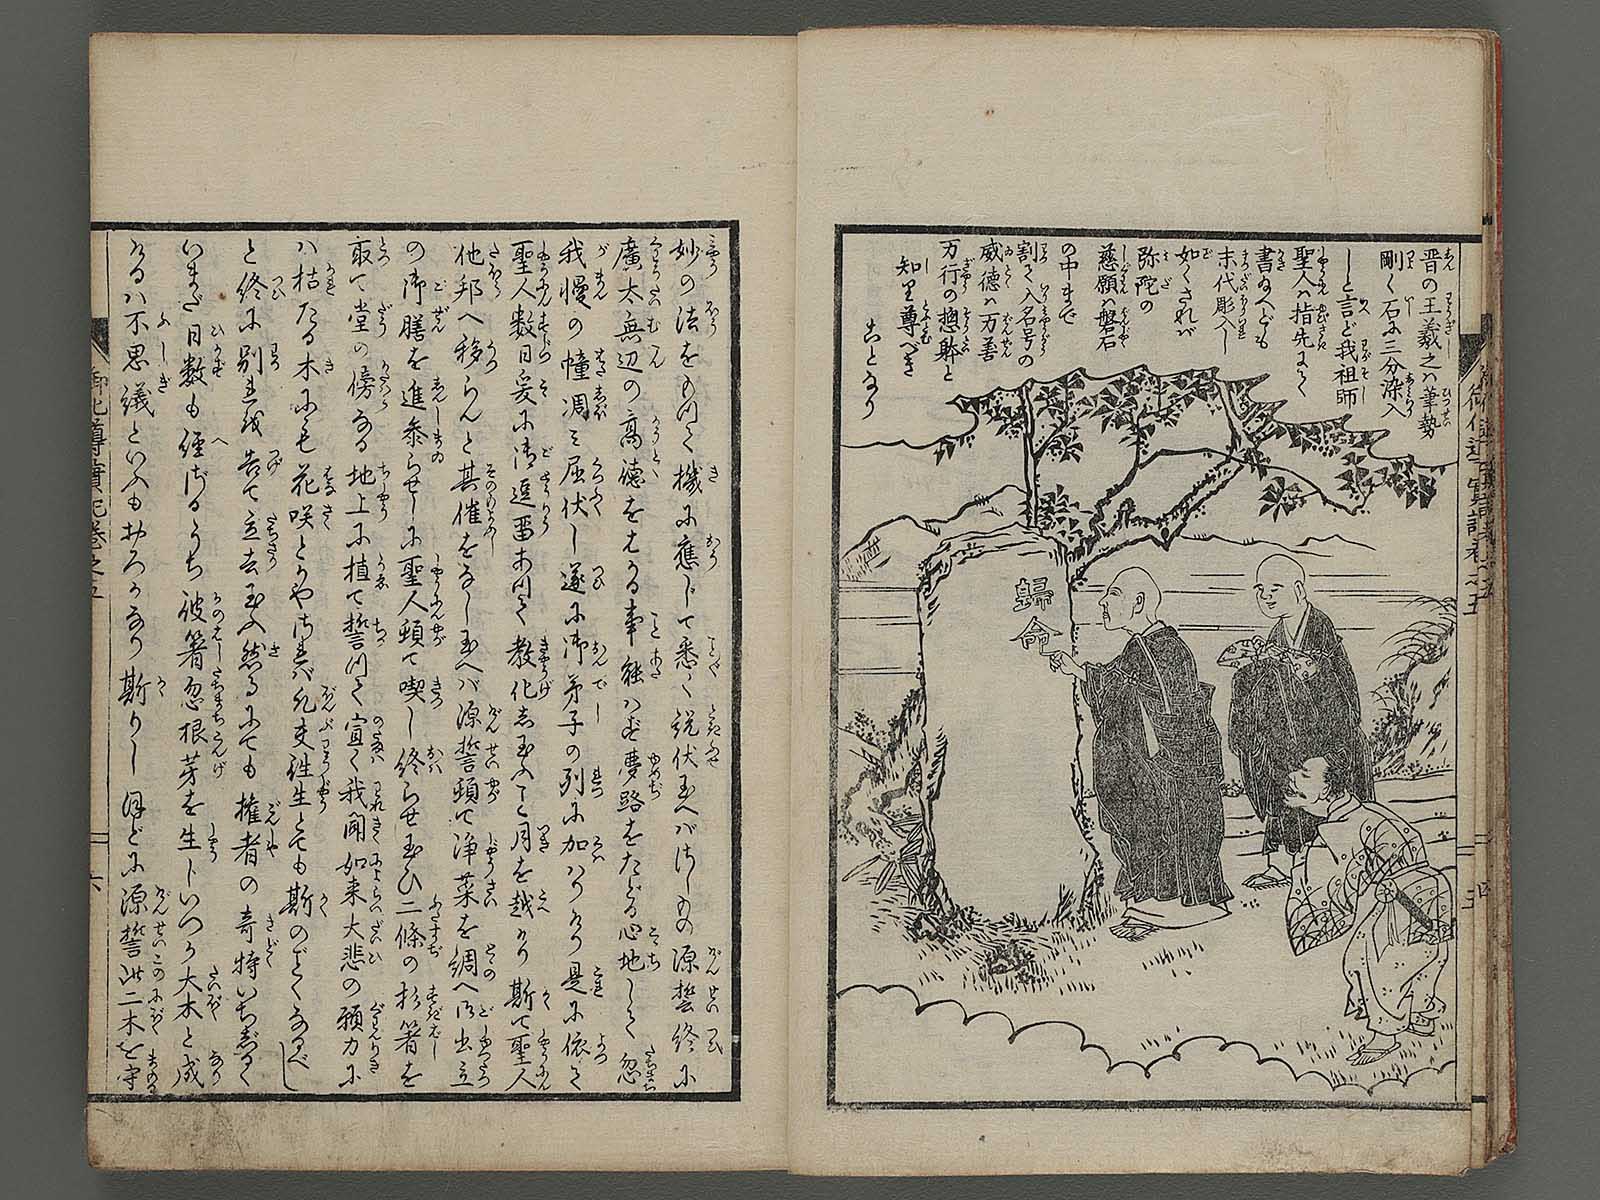 晋の王羲之ハ筆勢
剛く石に三分染入
しと言ど我祖師
聖人ハ指先にて
書給へども
末代彫入し
如くされバ
弥陀の
慈願ハ磐石
の中まで
割て入名号の
威徳ハ万善
万行の惣躰と
知り尊べき
ことなり
歸
命
妙の法をもつて機に應じて悉く説伏玉へバさしもの源誓終に
廣太無辺の高徳をはかる事能ハず夢路をたどる心地して忽
我慢の幢凋ミ屈伏し遂に御弟子の列に加ハりけり是に依て
聖人数日爰に御逗畱あつて教化し玉ふこと月を越けり斯て聖人
他邦へ移らんと其催をなし玉へバ源誓頓て浄菜を調へ御出立
の御膳を進参らせしに聖人頓て喫し終らせ玉ひ二條の杉箸を
取て堂の傍なる地上に植て誓つて宣く我聞如来大悲の願力に
ハ枯たる木にも花咲とかやされバ凡夫往生とても斯のごとくなるべし
と終に別を告て立去玉ふ然るにても権者の奇特いちじるく
いまだ日数も経ざるうち彼箸忽根芽を生じいつか大木と成
けるハ不思議といふもおろかなり斯りしほどに源誓此二木を守